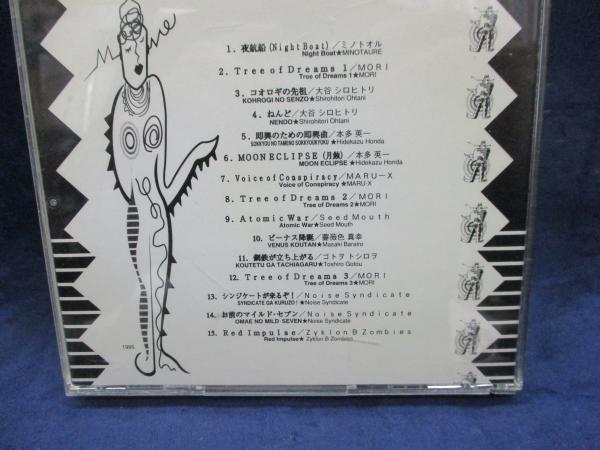 1. 夜航船 (Night Boat)／ミノトオル
Night Boat★MINOTAURE
2. Tree of Dreams 1／MORI
Tree of Dreams 1★MORI
3. コオロギの先祖／大谷 シロヒトリ
KOHROGI NO SENZO★Shirohitori Ohtani
4. ねんど／大谷 シロヒトリ
NENDO★Shirohitori Ohtani
5. 即興のための即興曲／本多 英一
SOKKYOU NO TAMENO SOKKYOUKYOKU★Hidekazu Honda
6. MOON ECLIPSE (月蝕)／本多 英一
MOON ECLIPSE★Hidekazu Honda
7. Voice of Conspiracy／MARU－X
Voice of Conspiracy★MARU-X
8. Tree of Dreams 2／MORI
Tree of Dreams 2★MORI
9. Atomic War／Seed Mouth
Atomic War★Seed Mouth
10. ビーナス降誕／薔薇色 真幸
VENUS KOUTAN★Masaki Barairo
11. 鋼鉄が立ち上がる／ゴトヲ トシロヲ
KOUTETU GA TACHIAGARU★Toshiro Gotou
12. Tree of Dreams 3／MORI
Tree of Dreams 3★MORI
13. シンジケートが来るぞ！／Noise Syndicate
SYNDICATE GA KURUZO!★Noise Syndicate
14. お前のマイルド・セブン／Noise Syndicate
OMAE NO MILD SEVEN★Noise Syndicate
15. Red Impulse／Zyklon B Zombies
Red Impulse★Zyklon B Zombies
1995